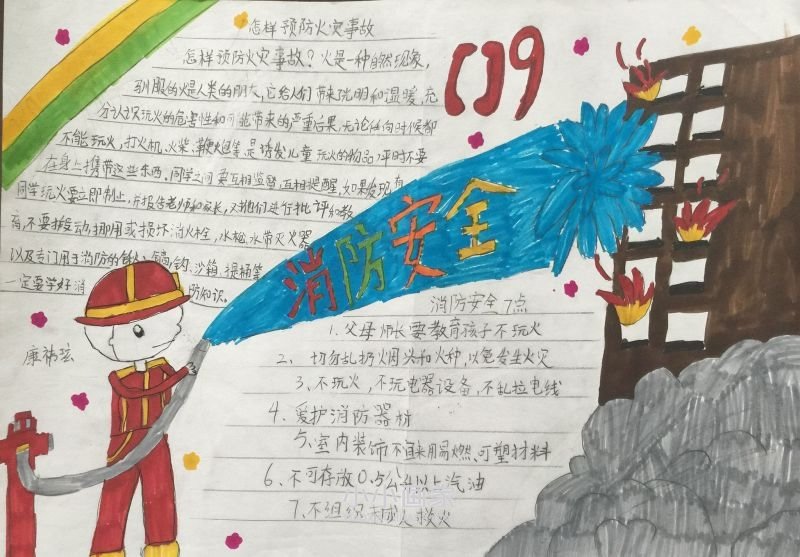 怎样预防火灾事故
怎样预防火灾事故？火是一种自然现象，
驯服的火是人类的朋友，它给人们带来光明和温暖，充
分认识玩火的危害性和可能带来的严重后果，无论任何时候都
不能玩火，打火机、火柴、鞭炮等，是诱发儿童玩火的物品平时不要
在身上携带这些东西，同学之间要互相监督，互相提醒，如果发现有
同学玩火要立即制止，并报告老师和家长，对他们进行批评和教
育，不要搬动挪用或损坏消火栓，水枪，水带灭火器
以及专门用于消防的锹、镐、钩、沙箱、提桶等
一定要学好消防知识。
119
消防安全
康祎玹
消防安全7点
1、父母师长要教育孩子不玩火
2、切勿乱扔烟头和火种，以免发生火灾
3、不玩火，不玩电器设备，不乱拉电线
4、爱护消防器材
5、室内装饰不宜采用易燃、可塑材料
6、不可存放0.5公升以上汽油
7、不组织未成人救火